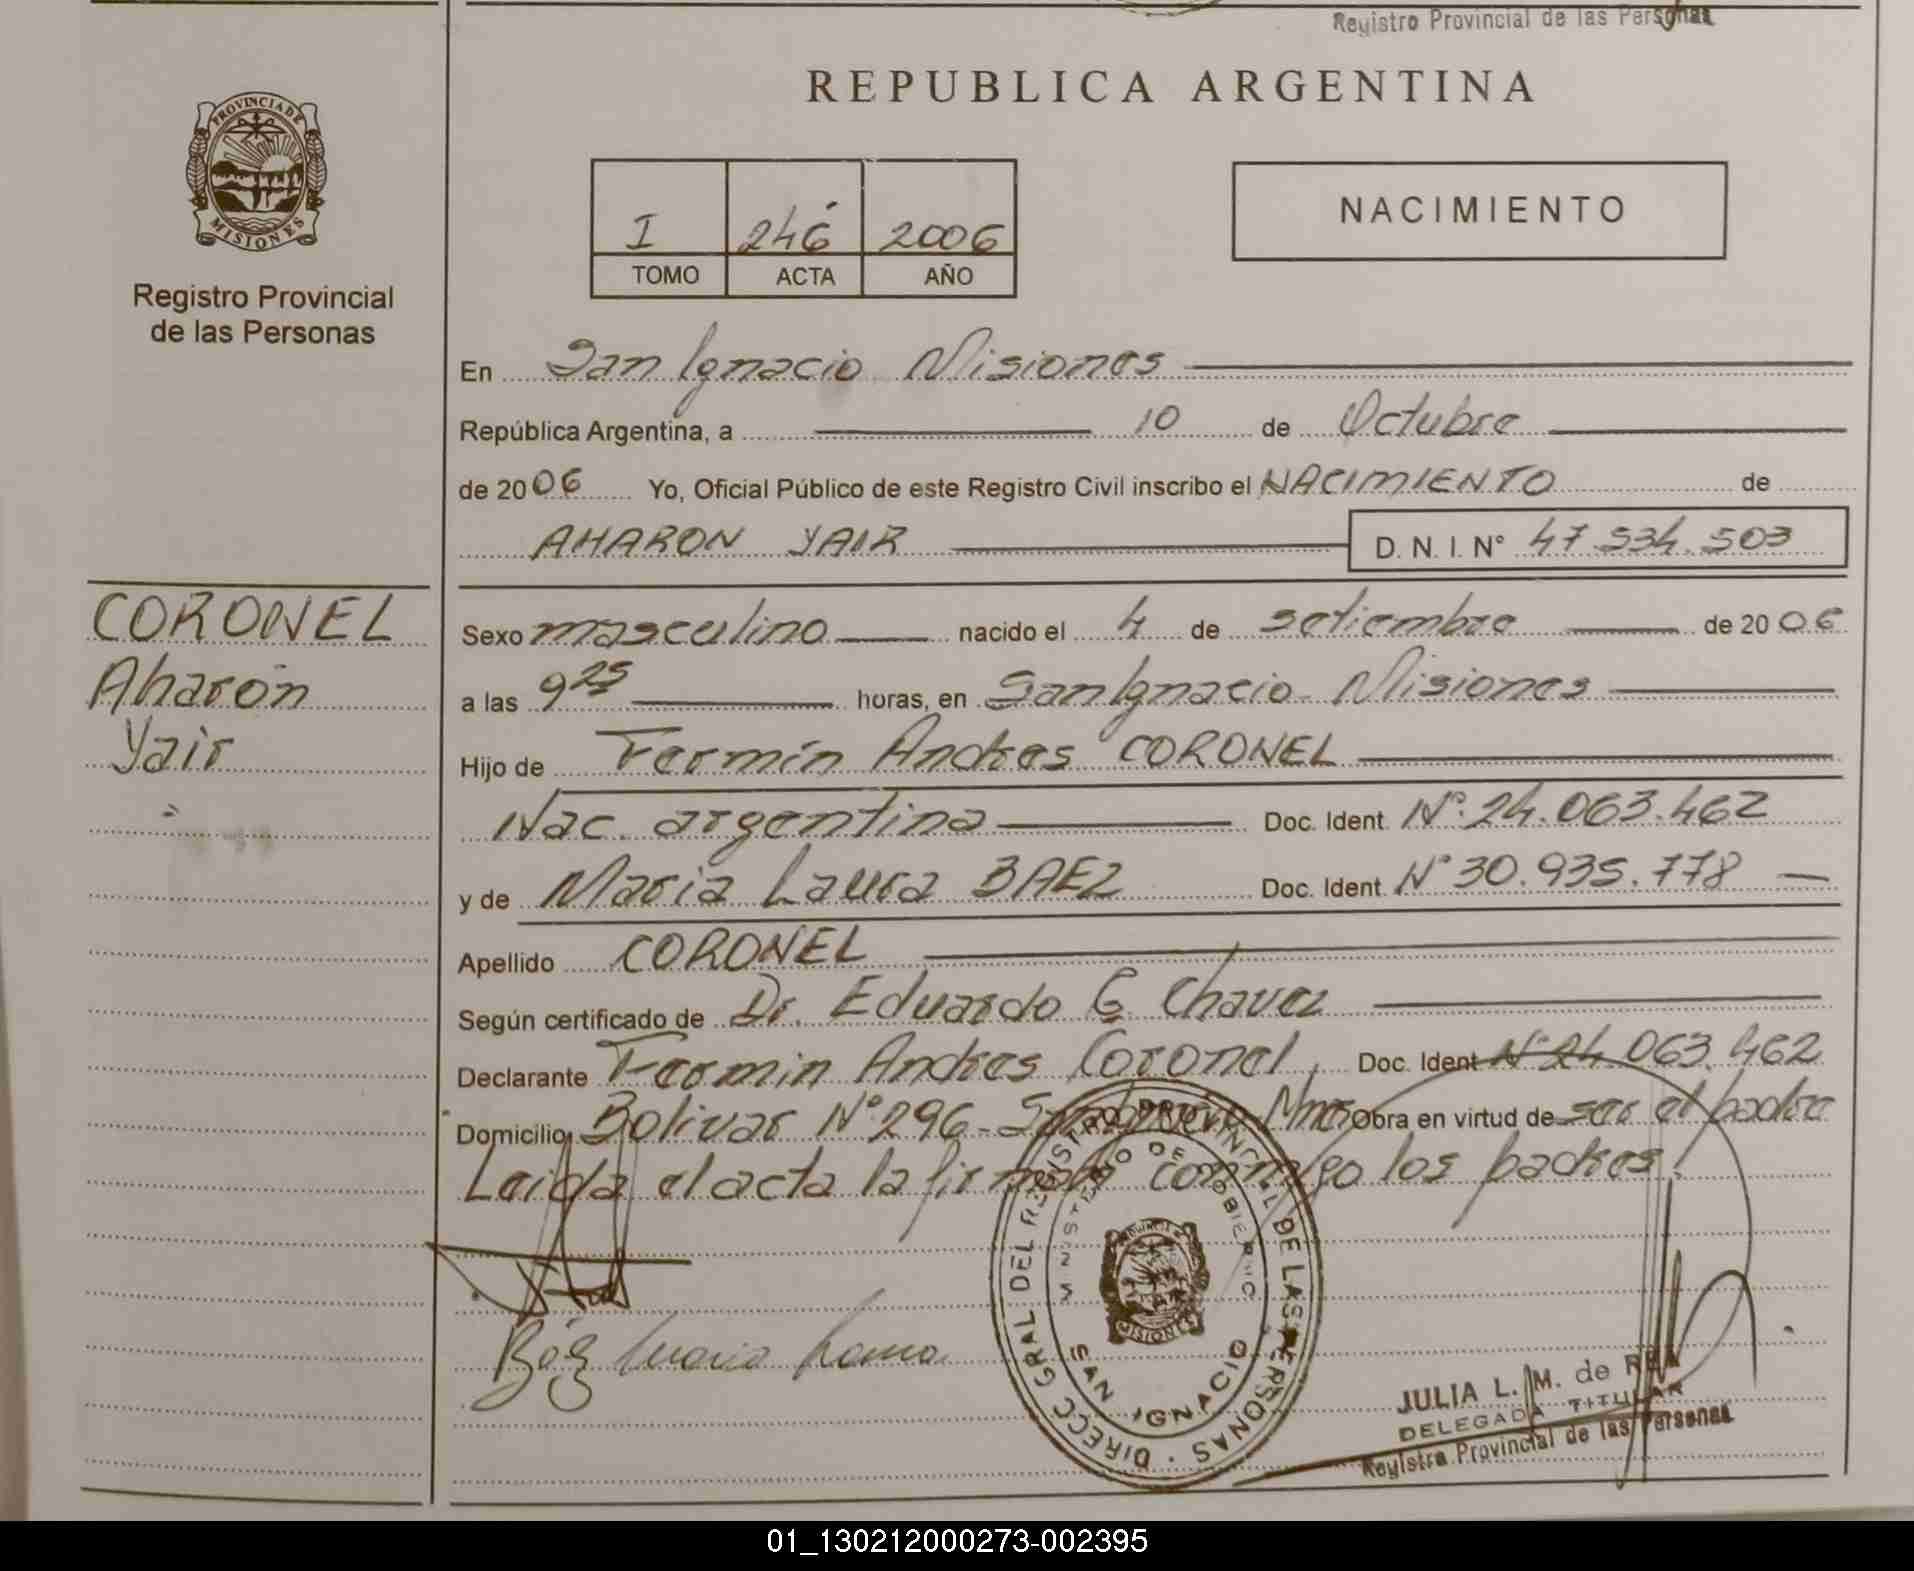 Registro Provincial de las Personas
REPUBLICA ARGENTINA
PROVINCIA DE
MISIONES
Registro Provincial
de las Personas
I 246 2006
TOMO ACTA AÑO
NACIMIENTO
En San Ignacio Misiones
República Argentina, a 10 de Octubre
de 2006 Yo, Oficial Público de este Registro Civil inscribo el NACIMIENTO de
AHARON YAIR D. N. I. N° 47.534.503
CORONEL
Aharón
Yair
Sexo masculino nacido el 4 de setiembre de 2006
a las 9 25 horas, en San Ignacio Misiones
Hijo de Fermín Andres CORONEL
Nac. argentina Doc. Ident. N°.24.063.462
y de Maria Laura BAEZ Doc. Ident. N° 30.935.778
Apellido CORONEL
Según certificado de Dr. Eduardo G Chavez
Declarante Fermin Andres Coronel, Doc. Ident N° 24.063.462
Domicilio Bolivar N° 296- San Ignacio Mnes Obra en virtud de ser el padre
Leida el acta la firman conmigo los padres.
Báez Maria Laura
DIRECC GRAL DEL REGISTRO PROVINCIAL DE LAS PERSONAS
MINISTERIO DE GOBIERNO
PROVINCIA DE
MISIONES
SAN IGNACIO
JULIA L. M. de REA
DELEGADA TITULAR
Registro Provincial de las Personas
01_130212000273-002395